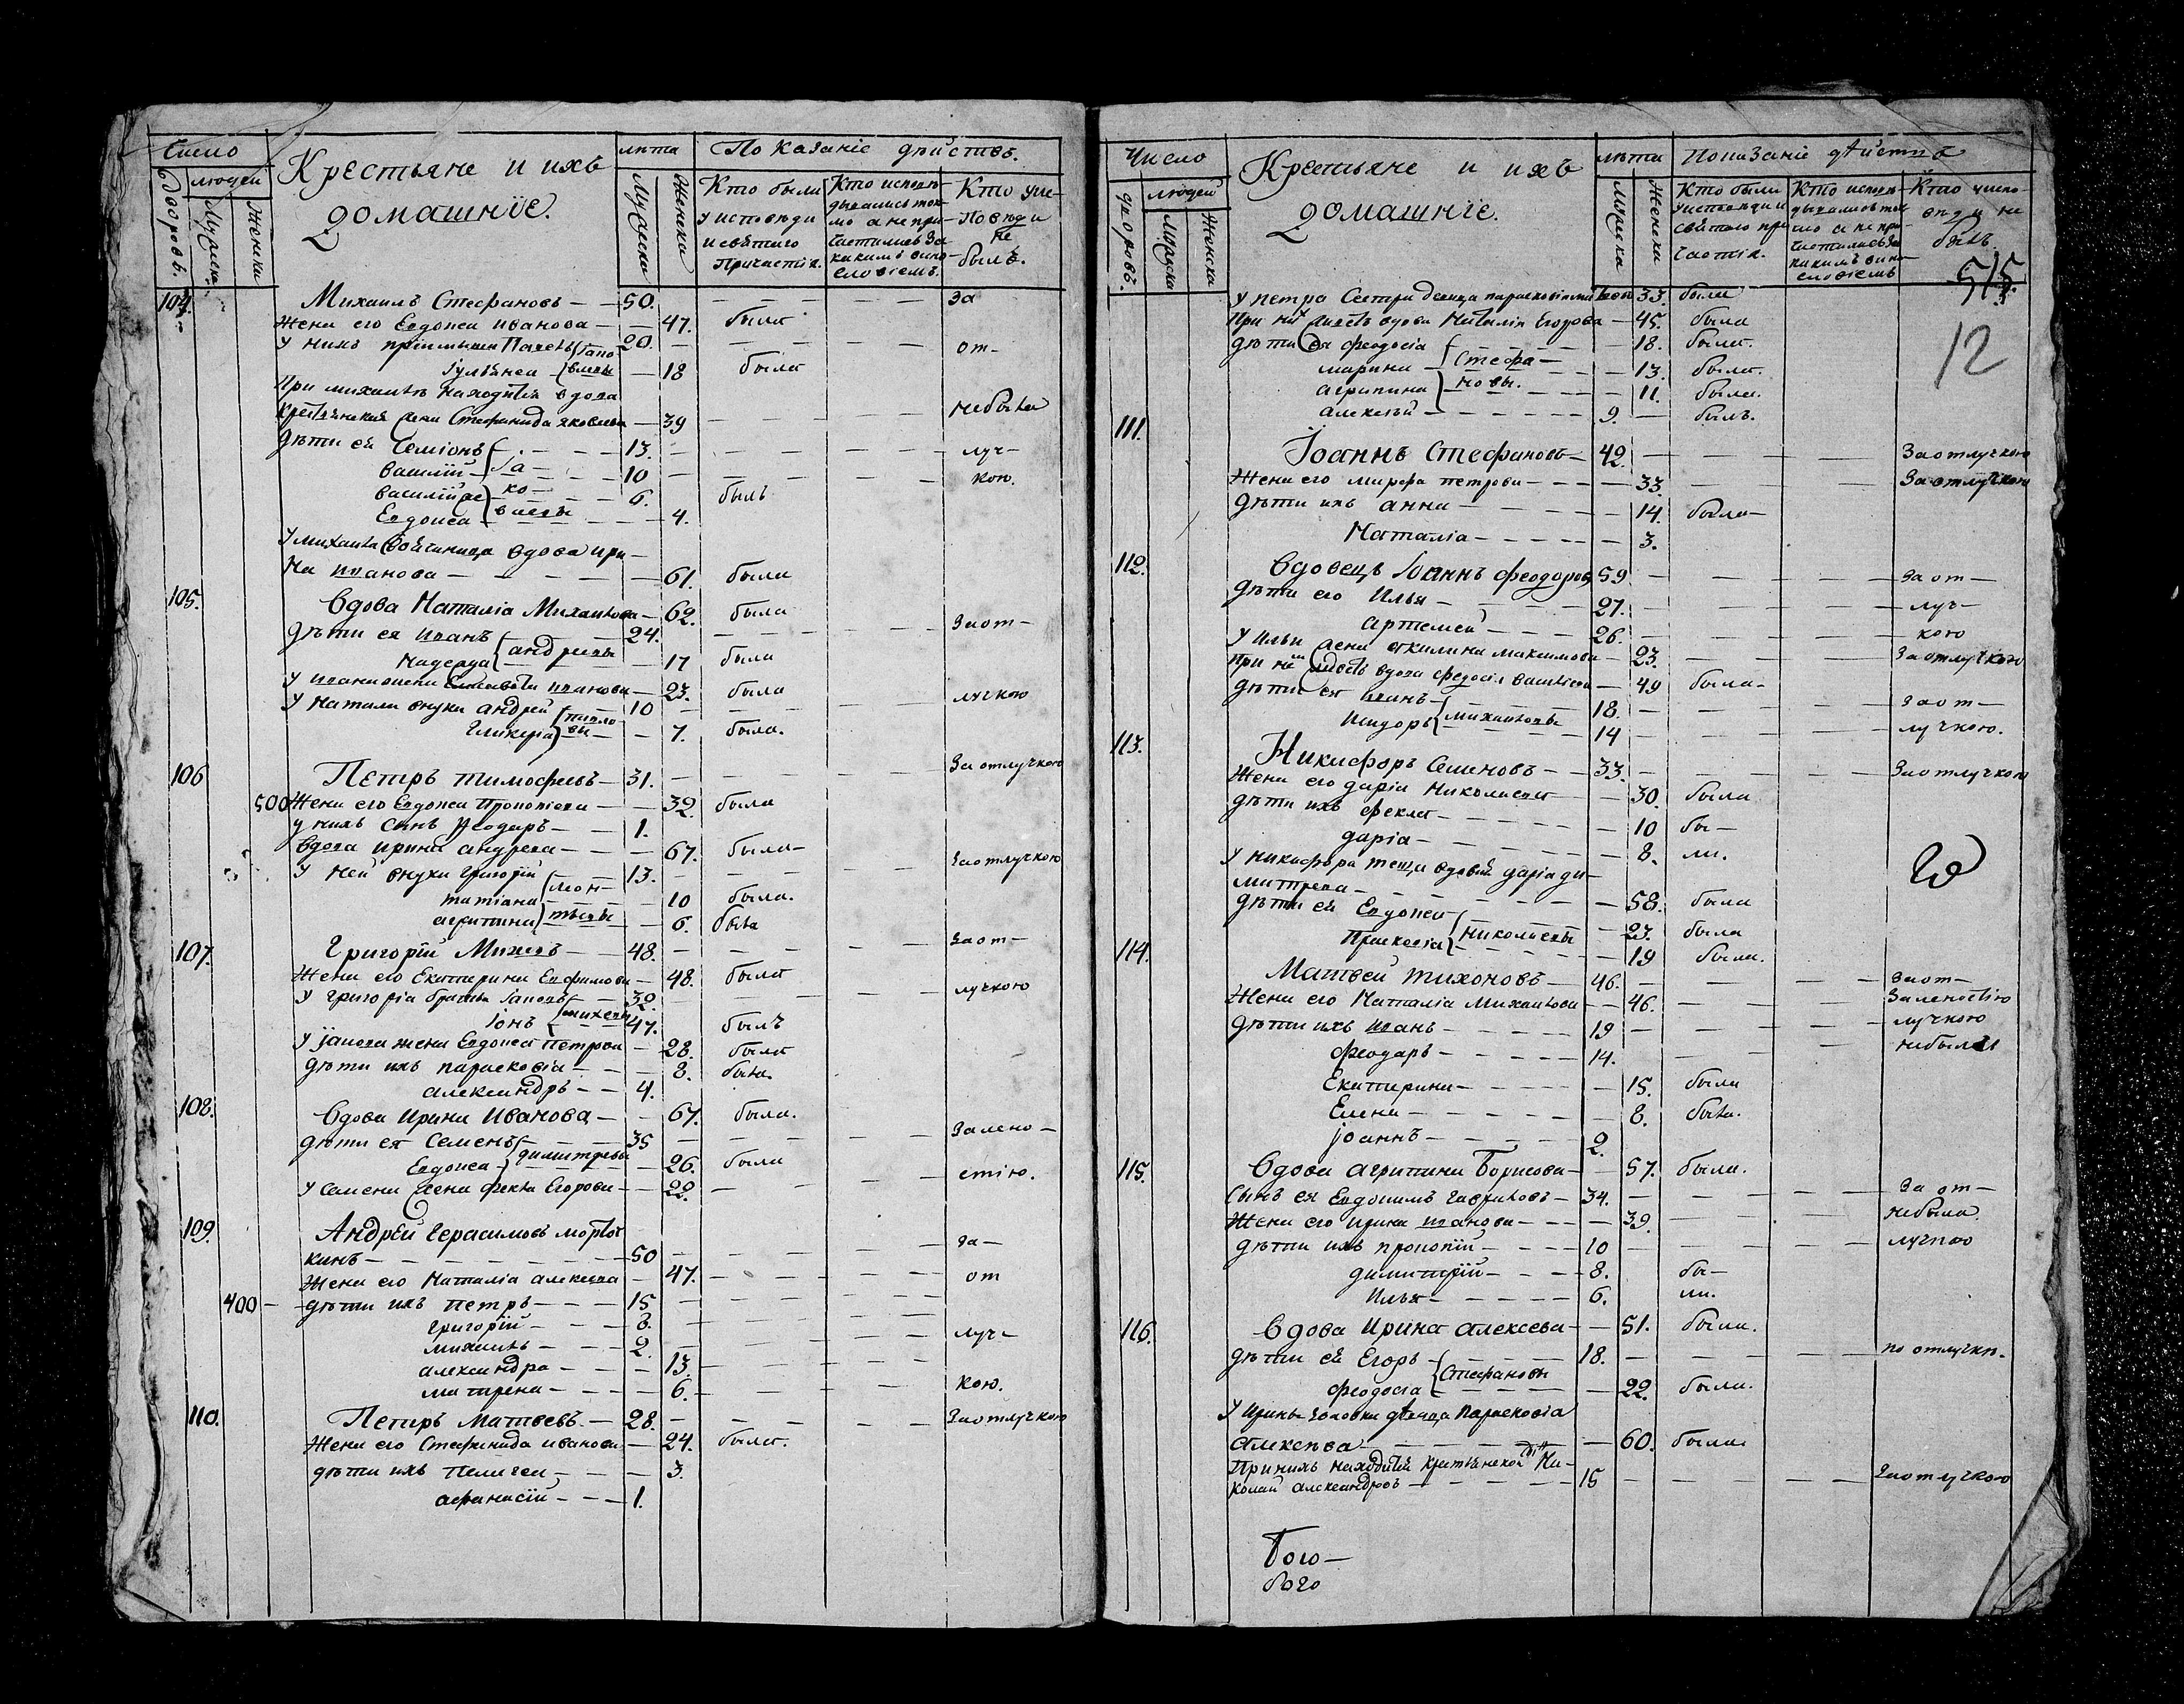 Число
Крестьяне и ихъ
домашнїе.
лѣта
Показанїе дѣйствъ.
дворовъ.
людей
Мужеска
Женска
Мужеска
Женска
Кто были
у исповѣди
и святаго
Причастїя.
Кто исповѣ-
дывались ток-
мо а не при-
частились за
какимъ вино-
словїемъ.
Кто у ис-
повѣди
не
былъ.
104. Михаилъ Стефановъ — 50. — за
Жена его Евдокеа Иванова — 47. была
У нихъ прїимышъ 20. — от-
18 была
При михаилѣ находится вдова
Крестьянская жена Стефанида яковлева — 39 — небыла
Дѣти ея Семїонъ 13. — луч-
Василїй 10 — кою.
Василїй же 6. былъ
Евдокеа — 4.
Іа-
ко-
влевы
У михаила своячиница вдова ири-
на иванова — 61. была
105. Вдова Наталїа Михаилова — 62. была
Дѣти ея иванъ 24. — За от-
Надежда — 17 была
андреевы
У ивана жена Елисавета иванова — 23. была
У натали внуки андрей 10 — лучкою
Гликерїа — 7. была.
106 Петръ тимофеевъ — 31. — За отлучкою
500 Жена его Евдокеа Прокопїева — 32. была
у нихъ сынъ Ѳеодаръ — 1.
Вдова ирина андреева — 67. была
У ней внуки григорїй 13. — За отлучкою
татїана — 10 была.
агрипина — 6. была
107. Григорїй Михеевъ — 48. — за от-
Жена его Екатерина Евфимова — 48. была
У григорїа братья Іаковъ 32. — лучкою
Іонъ 47. былъ
михеевы
У Іакова жена Евдокеа Петрова — 28. была
Дѣти ихъ параскевїа — 8. была.
александръ — 4.
108. Вдова Ирина Иванова — 67. была.
Дѣти ея Семенъ 35 — За лено-
Евдокеа — 26. была
димитревы
У Семена жена Фекла Егорова — 22. — стїю.
109. Андрей герасимовъ
кинъ — 50 — за-
Жена его Наталїа алексеева — 47. — от
400 — дѣти ихъ Петръ — 15
григорїй — 8.
михаилъ — 2. — луч-
александра — 13.
матрена — 6. — кою.
110. Петръ матвеевъ — 28. — За отлучкою
Жена его Стефанида иванова — 24. была.
дѣти ихъ Пелагеа — 3.
афанасїй — 1.
Число
Крестьяне и ихъ
домашнїе.
лѣта
Показанїе дѣйствъ
дворовъ.
людей
Мужеска
Женска
Мужеска
Женска
Кто были
у исповѣди и
святаго при-
частїя.
Кто исповѣ-
дывались ток-
мо а не при-
частились за
какимъ вино-
словїемъ
Кто у испо-
вѣди не
былъ.
515.
12
У петра Сестра девица параскевїа 33. была
При нихъ живетъ вдова Наталїя Егорова — 45. была
дѣти ея феодосїа — 18. была.
марина — 13. была.
агрипина — 11. была.
Стефа-
новы.
алексѣй — 9. былъ.
111. Іоаннъ Стефановъ — 42. — За отлучкою
Жена его марфа петрова — 33. — За отлучкою
Дѣти ихъ анна — 14. была
Наталїа — 3.
112. Вдовецъ Іоаннъ феодоровъ 59 — за от-
дѣти его Илья — 27. — луч-
артемей — 26. — кою
У ильи жена акилина максимова — 23. — За отлучкою
При немъ живетъ вдова федосїа василїева — 49 была
дѣти ея иванъ 18. — за от-
Исидоръ 14 — лучкою.
михаиловы
113. Никифоръ Семеновъ — 33. — За отлучкою
Жена его дарїа Николаева — 30. была
дѣти ихъ фекла — 10 бы-
дарїа — 8. ли.
У никифора теща вдова дарїа ди-
митрева — 58. была
дѣти ея Евдокеа — 23. была
Праскевїа — 19 была.
Николаевы
114. Матвей тихоновъ — 46. — за от-
Жена его Наталїа михаилова — 46. — За леностїю
дѣти ихъ иванъ — 19 — лучкою
феодаръ — 14. — небыли
Екатерина — 15. была
Елена — 8. была.
іоаннъ — 2.
115. Вдова агрипина Борисова — 57. была.
Сынъ ея Евдокимъ гавриловъ — 34. — За от-
Жена его ирина иванова — 39. — небыла.
дѣти ихъ прокопїй — 10 — лучкою
димитрїй — 8. бы-
Илья — 6. ли.
116. Вдова Ирина алексеева — 51. была.
дѣти ея Егоръ 18. — по отлучки.
феодосїа — 22. была.
Стефановы
У Ирины золовка девица Параскевїа
алексѣва — 60. была
При нихъ находится крестьянской Ни-
колай александровъ — 15 — За отлучкою
Бого-
бого